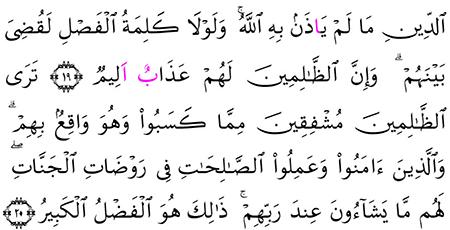 اَ۬لدِّينِ مَا لَمْ يَاذَنۢ بِهِ اِ۬للَّهُۚ وَلَوْلَا كَلِمَةُ اُ۬لْفَصْلِ لَقُضِيَ
بَيْنَهُمْۗ وَإِنَّ اَ۬لظَّٰلِمِينَ لَهُمْ عَذَابٌ اَلِيمٌ ١٩ تَرَى
اَ۬لظَّٰلِمِينَ مُشْفِقِينَ مِمَّا كَسَبُواْ وَهُوَ وَاقِعُۢ بِهِمْۗ
وَالَّذِينَ ءَامَنُواْ وَعَمِلُواْ اُ۬لصَّٰلِحَٰتِ فِى رَوْضَاتِ اِ۬لْجَنَّاتِۖ
لَهُم مَّا يَشَآءُونَ عِندَ رَبِّهِمْۚ ذَٰلِكَ هُوَ اَ۬لْفَضْلُ اُ۬لْكَبِيرُ ٢٠